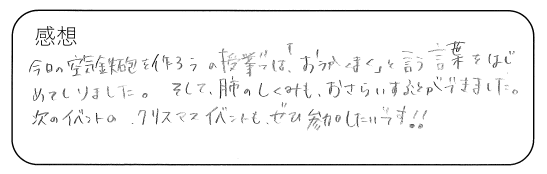 感想
今日の空気鉄砲を作ろうの授業では、「おうかくまく」と言う言葉をはじ
めてしりました。そして、肺のしくみも、おさらいすることができました。
次のイベントの、クリスマスイベントも、ぜひ参加したいです!!